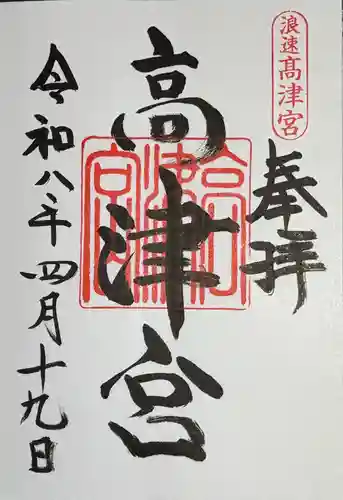 浪速高津宮
奉拝
高津宮
令和八年四月十九日
高津宮